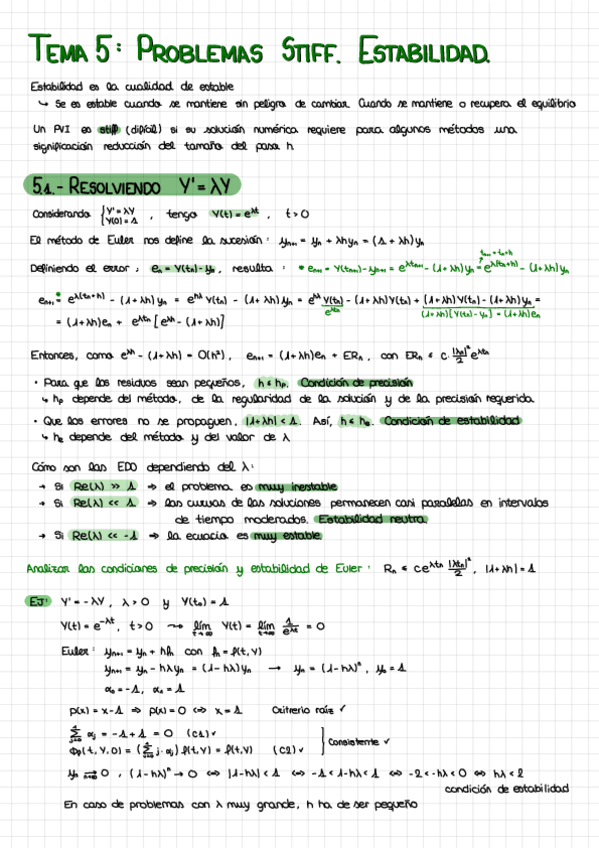 TEMA 5: PROBLEMAS STIFF. ESTABILIDAD.
Estabilidad es la cualidad de estable
↳ Se es estable cuando se mantiene sin peligro de cambiar. Cuando se mantiene o recupera el equilibrio
Un PVI es stiff (difícil) si su solución numérica requiere para algunos métodos una
significación reducción del tamaño del paso h
5.1.- RESOLVIENDO Y' = λY
Considerando { Y' = λY, Y(0) = 1 , tengo Y(t) = e^{λt} , t > 0
El método de Euler nos define la sucesión: y_{n+1} = y_n + λhy_n = (1 + λh)y_n
t_{n+1} = t_n + h
Definiendo el error: e_n = Y(t_n) - y_n, resulta: * e_{n+1} = Y(t_{n+1}) - y_{n+1} = e^{λt_{n+1}} - (1 + λh)y_n = e^{λ(t_n+h)} - (1 + λh)y_n
e_{n+1} =* e^{λ(t_n+h)} - (1 + λh)y_n = e^{λh} Y(t_n) - (1 + λh)y_n = e^{λh} Y(t_n) - (1 + λh)Y(t_n) + (1 + λh)Y(t_n) - (1 + λh)y_n =
e^{λt_n} (1 + λh)[Y(t_n) - y_n] = (1 + λh)e_n
= (1 + λh)e_n + e^{λt_n}[e^{λh} - (1 + λh)]
Entonces, como e^{λh} - (1 + λh) = O(h²), e_{n+1} = (1 + λh)e_n + ER_n, con ER_n ≤ C · |λh|²/2 e^{λt_n}
· Para que los residuos sean pequeños, h ≤ h_p. Condición de precisión
↳ h_p depende del método, de la regularidad de la solución y de la precisión requerida.
· Que los errores no se propaguen, |1 + λh| < 1. Así, h ≤ h_e. Condición de estabilidad
↳ h_e depende del método y del valor de λ
Cómo son las EDO dependiendo del λ:
→ Si Re(λ) >> 1 ⇒ el problema es muy inestable
→ Si Re(λ) << 1 ⇒ las curvas de las soluciones permanecen casi paralelas en intervalos
de tiempo moderados. Estabilidad neutra.
→ Si Re(λ) << -1 ⇒ la ecuacia es muy estable
Analizar las condiciones de precisión y estabilidad de Euler: R_n ≤ C e^{λt_n} |λt_n|²/2, |1 + λh| = 1
EJ: Y' = -λY, λ > 0 y Y(t_0) = 1
Y(t) = e^{-λt}, t > 0 ⇝ lím_{t→∞} Y(t) = lím_{t→∞} 1/e^{λt} = 0
Euler: y_{n+1} = y_n + hf_n con f_n = f(t, Y)
y_{n+1} = y_n - hλy_n = (1 - hλ)y_n → y_n = (1 - hλ)^n, y_0 = 1
α_0 = -1, α_1 = 1
p(x) = x - 1 ⇒ p(x) = 0 ⇔ x = 1 Critrerio raíz ✓
∑_{j=0}^{1} α_j = -1 + 1 = 0 (C1) ✓
Φ_F(t, Y, 0) = (∑_{j=0}^{1} j · α_j) f(t, Y) = f(t, Y) (C2) ✓ } Consistente ✓
y_n →_{n→∞} 0, (1 - hλ)^n → 0 ⇔ |1 - hλ| < 1 ⇔ -1 < 1 - hλ < 1 ⇔ -2 < -hλ < 0 ⇔ hλ < 2
condición de estabilidad
En caso de problemas con λ muy grande, h ha de ser pequeño